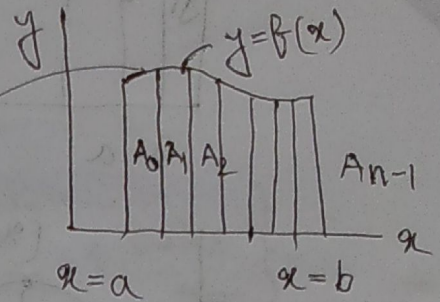 y
y=f(x)
A₀ A₁ A₂
Aₙ₋₁
x
x=a x=b